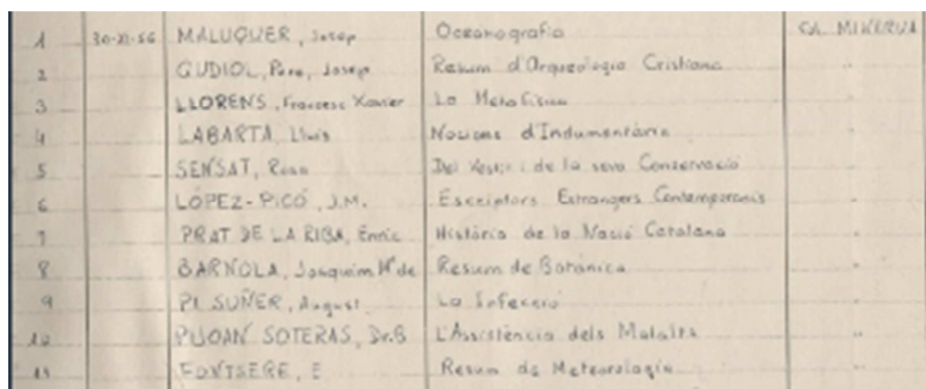 1 30-XI-56 MALUQUER, Josep Oceanografia COL. MINERVA
2 GUDIOL, Pvre, Josep Resum d'Arqueologia Cristiana "
3 LLORENS, Francesc Xavier La Metafísica "
4 LABARTA, Lluis Nocions d'Indumentària "
5 SENSAT, Rosa Del Vestir i de la seva Conservació "
6 LÓPEZ-PICÓ, J.M. Escriptors Estrangers Contemporanis "
7 PRAT DE LA RIBA, Enric Història de la Nació Catalana "
8 BARNOLA, Joaquim Mª de Resum de Botànica "
9 PI SUÑER, August La Infecció "
10 PIJOAN SOTERAS, Dr.B L'Assistència dels Malalts "
11 FONTSERE, E Resum de Meteorologia "